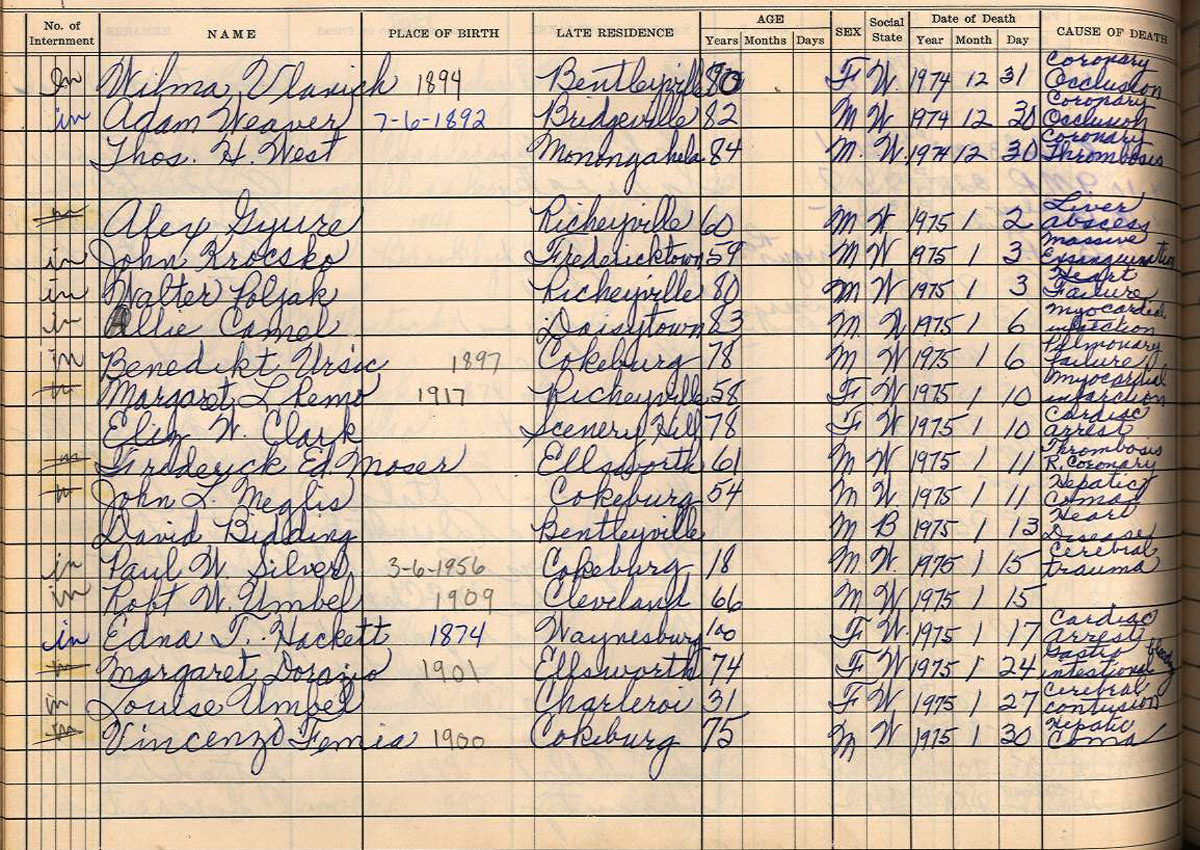 No. of Internment NAME PLACE OF BIRTH LATE RESIDENCE AGE Years Months Days SEX Social State Date of Death Year Month Day CAUSE OF DEATH
In Wilma Vlavich 1894 Bentleyville 80 F W. 1974 12 31 Coronary Occlusion
in Adam Weaver 7-6-1892 Bridgeville 82 M W 1974 12 30 Coronary Occlusion
Thos. H. West Monongahela 84 M. W. 1974 12 30 Coronary Thrombosis
in Alex Gyure Richeyville 60 M W 1975 1 2 Liver abscess
in John Krocsko Fredericktown 59 M W 1975 1 3 Massive Exsanguination
in Walter Poljak Richeyville 80 M W 1975 1 3 Heart Failure
in Allie Camel Daisytown 83 M. W 1975 1 6 Myocardial infarction
in Benedikt Ursic 1897 Cokeburg 78 M W 1975 1 6 Pulmonary failure
in Margaret 1917 Richeyville 58 F W 1975 1 10 Myocardial infarction
Eliz W. Clark Scenery Hill 78 F W 1975 1 10 Cardiac arrest
in Frederick Ed Moser Ellsworth 61 M W 1975 1 11 Thrombosis R. Coronary
in John L. Neglis Cokeburg 54 M W 1975 1 11 Hepatic Coma
David Bidding Bentleyville M B 1975 1 13 Heart Disease
in Paul W. Silver 3-6-1956 Cokeburg 18 M. W. 1975 1 15 Cerebral trauma
in Robt W. Umbel 1909 Cleveland 66 M W 1975 1 15
in Edna T. Hackett 1874 Waynesburg 100 F W. 1975 1 17 Cardiac Arrest
in Margaret Dorazio 1901 Ellsworth 74 F W 1975 1 24 Gastro intestional bleeding
in Louise Umbel Charleroi 31 F W 1975 1 27 Cerebral contusion
in Vincenzo Femia 1900 Cokeburg 75 M W 1975 1 30 Hepatic Coma